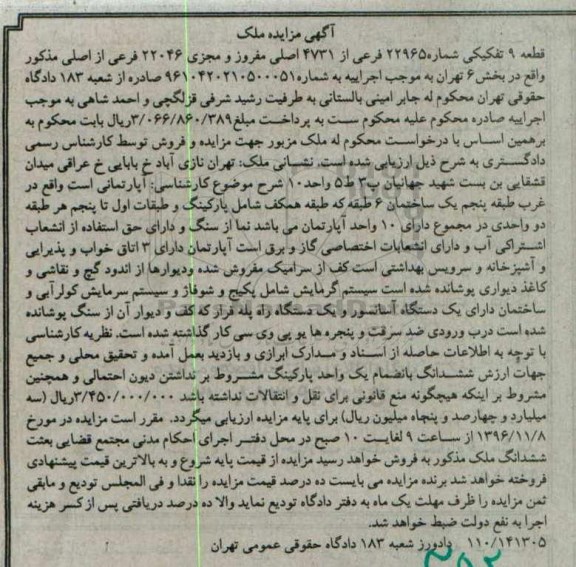 آگهی مزایده ملک
قطعه ۹ تفکیکی شماره۲۲۹۶۵ فرعی از ۴۷۳۱ اصلی مفروز و مجزی ۲۲۰۴۶ فرعی از اصلی مذکور
واقع در بخش۶ تهران به موجب اجراییه به شماره۹۶۱۰۴۲۰۲۱۰۵۰۰۰۵۱ صادره از شعبه ۱۸۳ دادگاه
حقوقی تهران محکوم له جابر امینی بالستانی به طرفیت رشید شرفی قزلگچی و احمد شاهی به موجب
اجراییه صادره محکوم علیه محکوم ست به پرداخت مبلغ۳/۰۶۶/۸۶۰/۳۸۹ریال بابت محکوم به
برهمین اساس با درخواست محکوم له ملک مزبور جهت مزایده و فروش توسط کارشناس رسمی
دادگستری به شرح ذیل ارزیابی شده است. نشانی ملک: تهران نازی آباد خ بابایی خ عراقی میدان
قشقایی بن بست شهید جهانیان پ۲ ط۵ واحد۱۰ شرح موضوع کارشناسی: آپارتمانی است واقع در
غرب طبقه پنجم یک ساختمان ۶ طبقه که طبقه همکف شامل پارکینگ و طبقات اول تا پنجم هر طبقه
دو واحدی در مجموع دارای ۱۰ واحد آپارتمان می باشد نما از سنگ و دارای حق استفاده از انشعاب
اشتراکی آب و دارای انشعابات اختصاصی گاز و برق است آپارتمان دارای ۳ اتاق خواب و پذیرایی
و آشپزخانه و سرویس بهداشتی است کف از سرامیک مفروش شده ودیوارها از اندود گچ و نقاشی و
کاغذ دیواری پوشانده شده است سیستم گرمایش شامل پکیج و شوفاژ و سیستم سرمایش کولرآبی و
ساختمان دارای یک دستگاه آسانسور و یک دستگاه راه پله قرار که کف و دیوار آن از سنگ پوشانده
شده است درب ورودی ضد سرقت و پنجره ها یو پی وی سی کار گذاشته شده است. نظریه کارشناسی
با توجه به اطلاعات حاصله از اسناد و مدارک ابرازی و بازدید بعمل آمده و تحقیق محلی و جمیع
جهات ارزش ششدانگ بانضمام یک واحد پارکینگ مشروط بر نداشتن دیون احتمالی و همچنین
مشروط بر اینکه هیچگونه منع قانونی برای نقل و انتقالات نداشته باشد ۳/۴۵۰/۰۰۰/۰۰۰ریال (سه
میلیارد و چهارصد و پنجاه میلیون ریال) برای پایه مزایده ارزیابی میگردد. مقرر است مزایده در مورخ
۱۳۹۶/۱۱/۸ از ساعت ۹ لغایت ۱۰ صبح در محل دفتر اجرای احکام مدنی مجتمع قضایی بعثت
ششدانگ ملک مذکور به فروش خواهد رسید مزایده از قیمت پایه شروع و به بالاترین قیمت پیشنهادی
فروخته خواهد شد برنده مزایده می بایست ده درصد قیمت مزایده را نقدا و فی المجلس تودیع و مابقی
ثمن مزایده را ظرف مهلت یک ماه به دفتر دادگاه تودیع نماید والا ده درصد دریافتی پس از کسر هزینه
اجرا به نفع دولت ضبط خواهد شد.
۱۱۰/۱۴۱۳۰۵ دادورز شعبه ۱۸۳ دادگاه حقوقی عمومی تهران